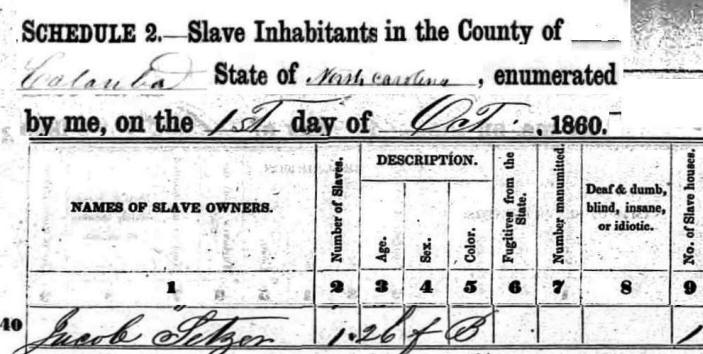 SCHEDULE 2.—Slave Inhabitants in the County of
Catawba State of North Carolina, enumerated
by me, on the 1st day of Oct., 1860.
NAMES OF SLAVE OWNERS.
Number of Slaves.
DESCRIPTION.
Age.
Sex.
Color.
Fugitives from the State.
Number manumitted.
Deaf & dumb,
blind, insane,
or idiotic.
No. of Slave houses.
1 2 3 4 5 6 7 8 9
40 Jacob Setzer 1 26 f B 1